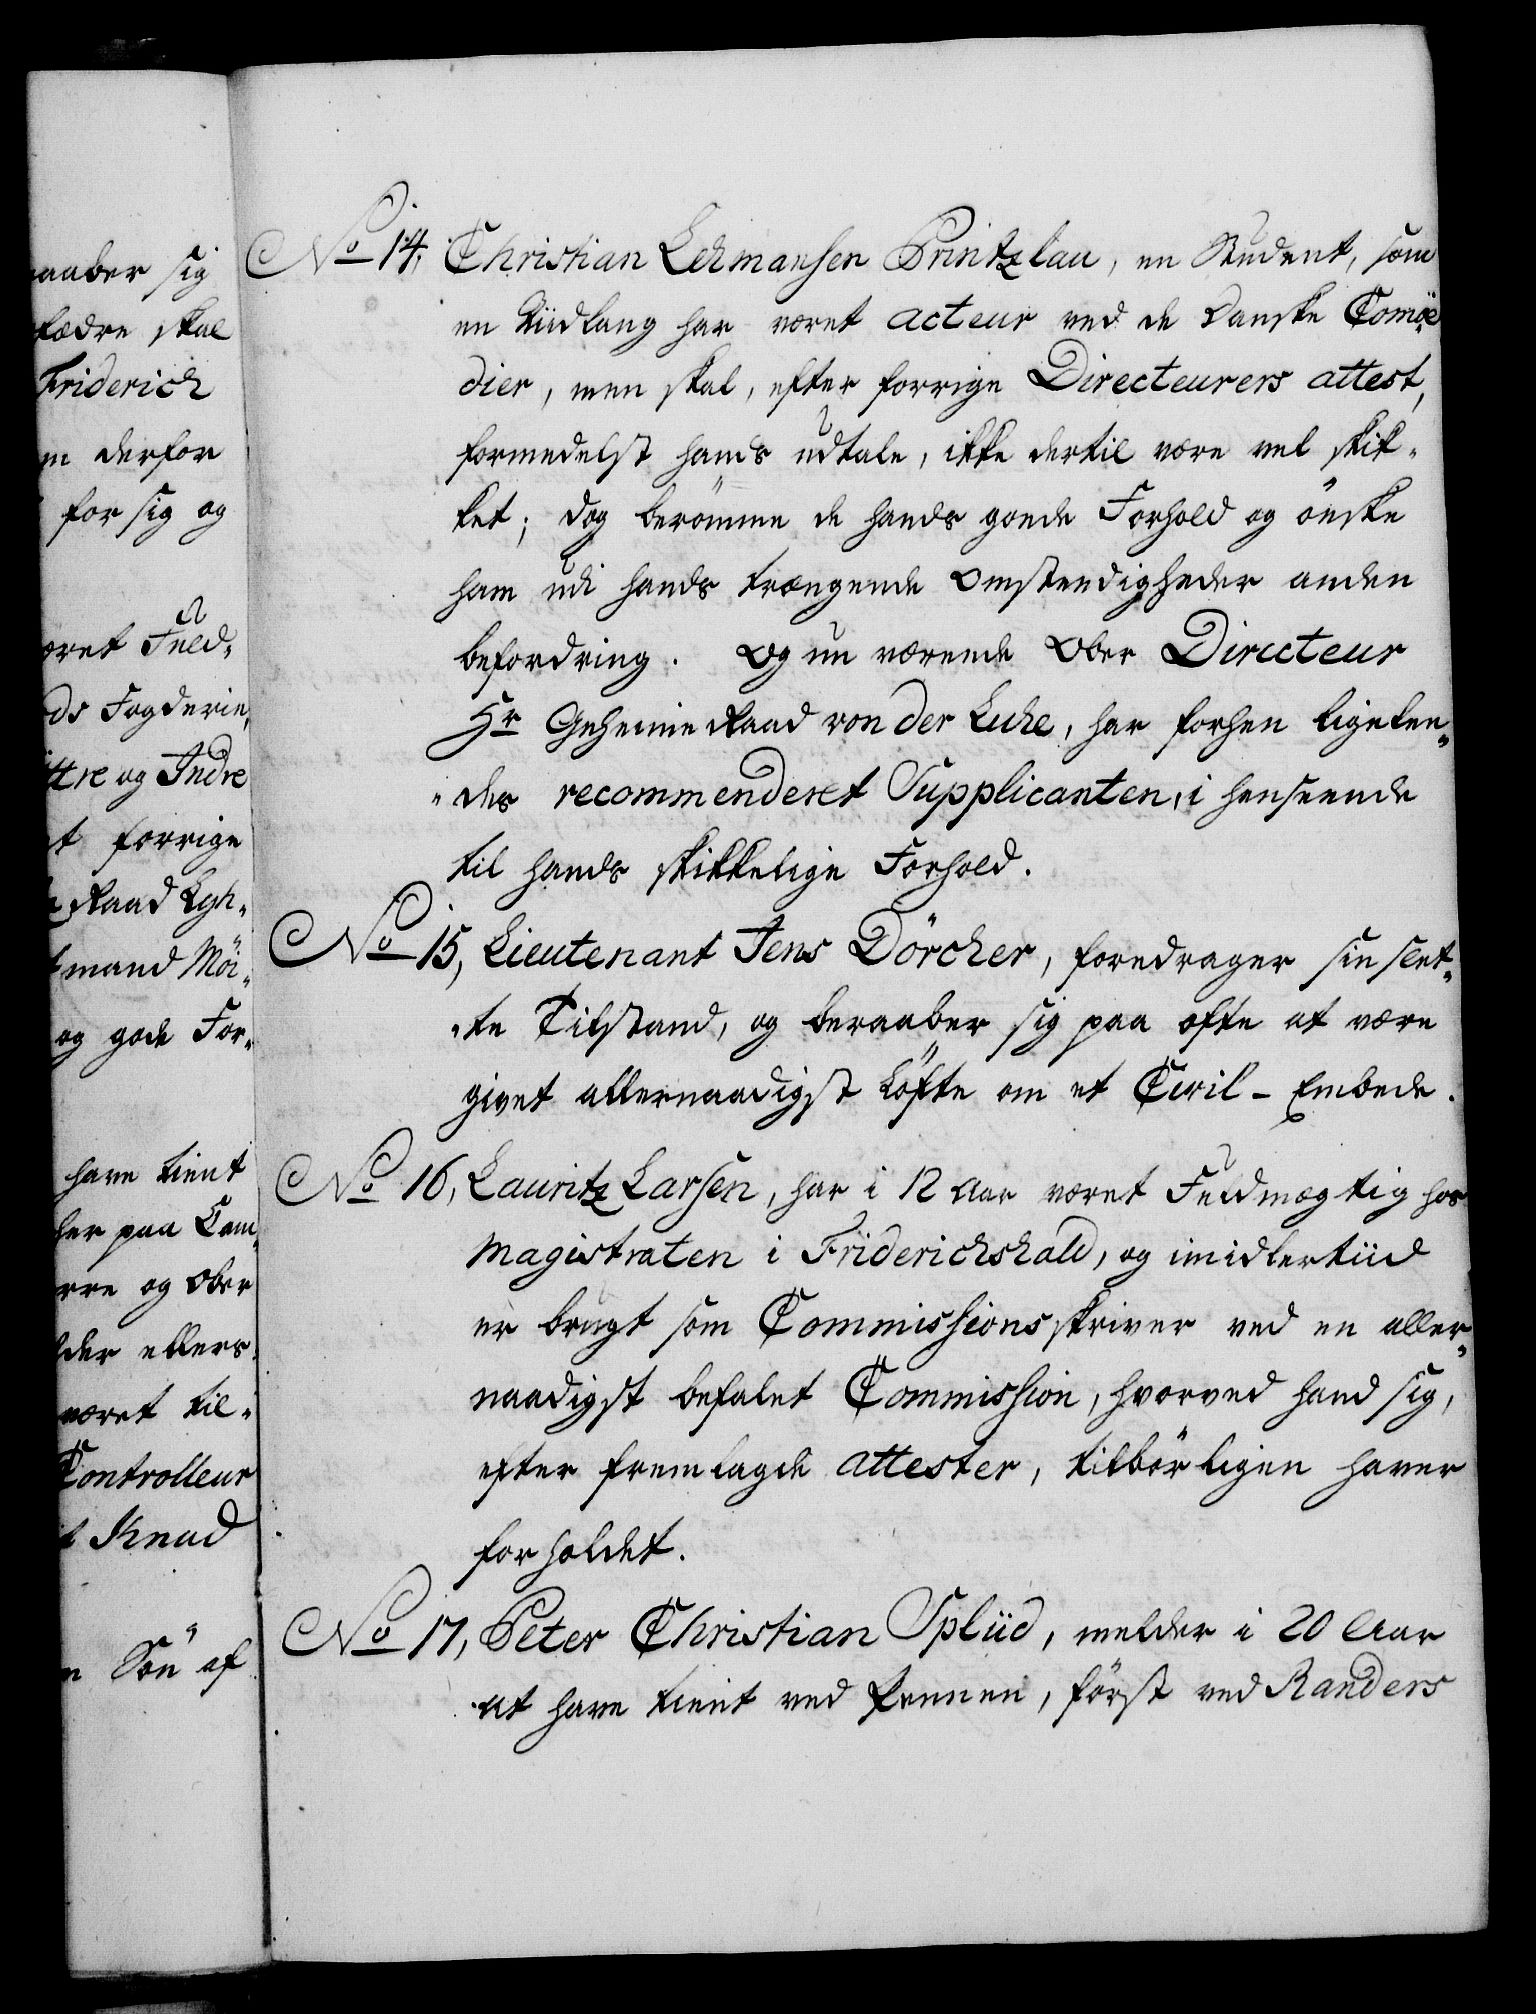 raaber sig
fædre skal
Friderich
m derfor
for sig og
æret Fuld-
ds Fogderie,
ttre og Andre
t forrige
Raad Lyh-
mand Möi-
og gode For-
have tient
her paa Cam-
rre og Ober
lder ellers
været til-
Controlleur
t Knud
n Sön af
No 14, Christian Lehmansen Printzlau, en Student, som
en tiidlang har været acteur ved de Danske Comoe-
dier, men skal, efter forrige Directeurers attest,
formedelst hands udtale, ikke dertil være vel skik-
ket; dog berömme de hands goede Forhold og önske
ham udi hands trængende Omstendigheder anden
befordring. Og nu værende Ober Directeur
Hr Geheime Raad von der Luhe, har forhen ligelee-
-des recommenderet Supplicanten, i henseende
til hands skikkelige Forhold.
No 15, Lieutenant Jens Dörcher, foredrager sin slet-
-te Tilstand, og beraaber sig paa ofte at være
givet allernaadigst Löfte om et Civil-Embede.
No 16, Lauritz Larsen, har i 12 Aar været Fuldmægtig hos
Magistraten i Friderichshald, og imidlertiid
er brugt som Commissionsskriver ved en aller-
naadigst befalet Commission, hvorved hand sig,
efter fremlagde attester, tilbörligen haver
forholdet.
No 17, Peter Christian Spliid, melder i 20 Aar
at have tient ved Pennen, först ved Randers